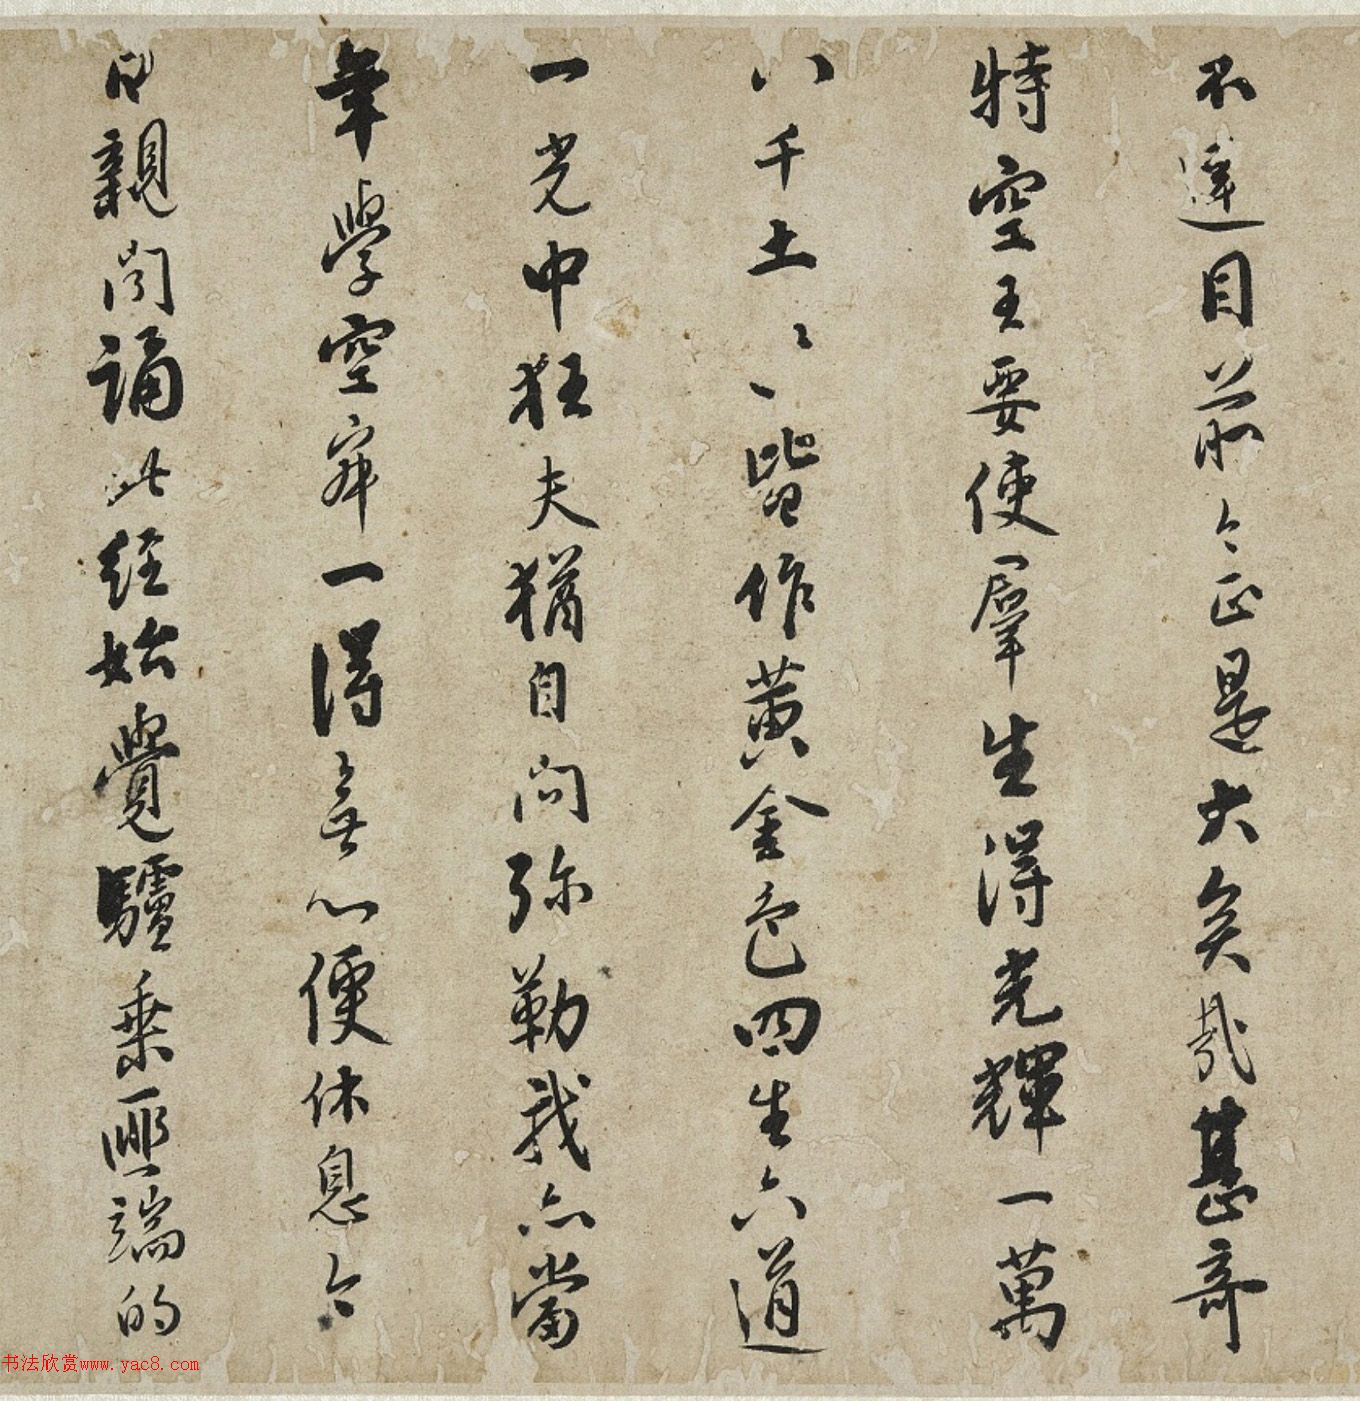 不達目前今正是大矣哉甚奇
特空王要使羣生得光輝一萬
八千土〻皆作黄金色四生六道
一光中狂夫猶自问弥勒我亦當
年學空寂一得無心便休息今
日親聞誦此經始覺驢乗匪端的
书法欣赏www.yac8.com